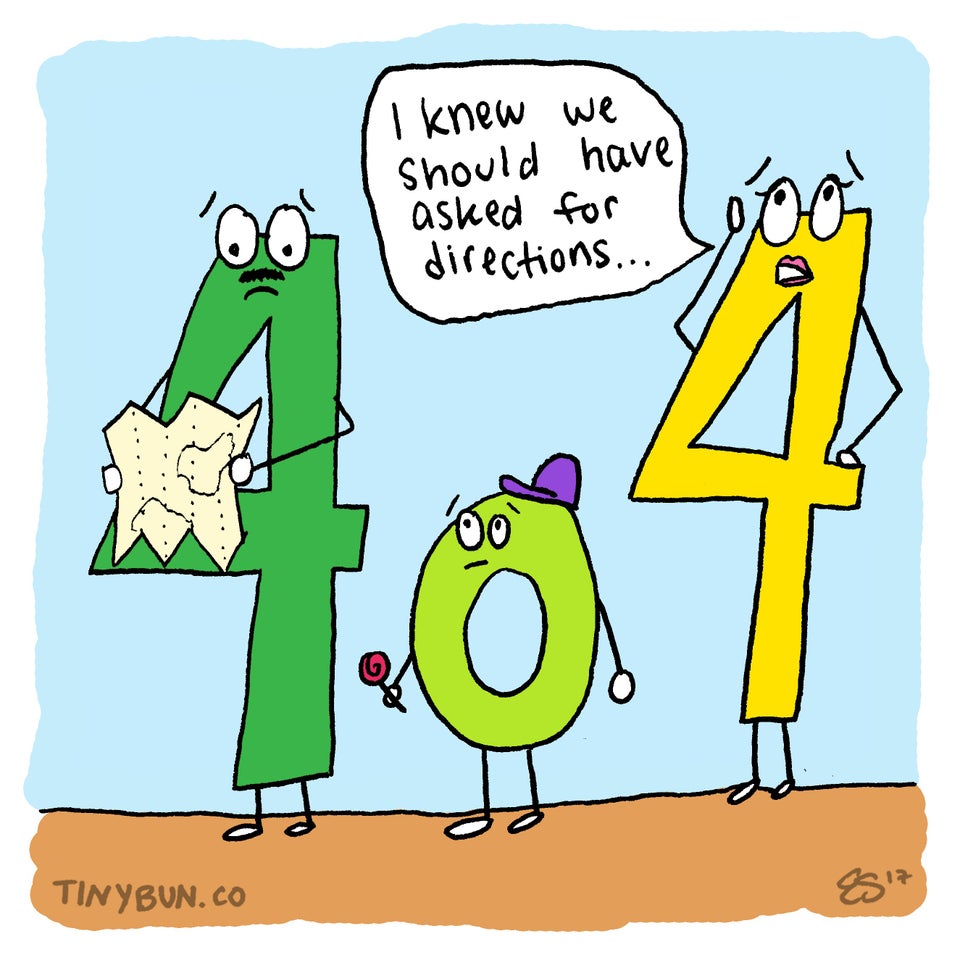 I knew we
should have
asked for
directions...
4 0 4
TINYBUN.CO
ES '17